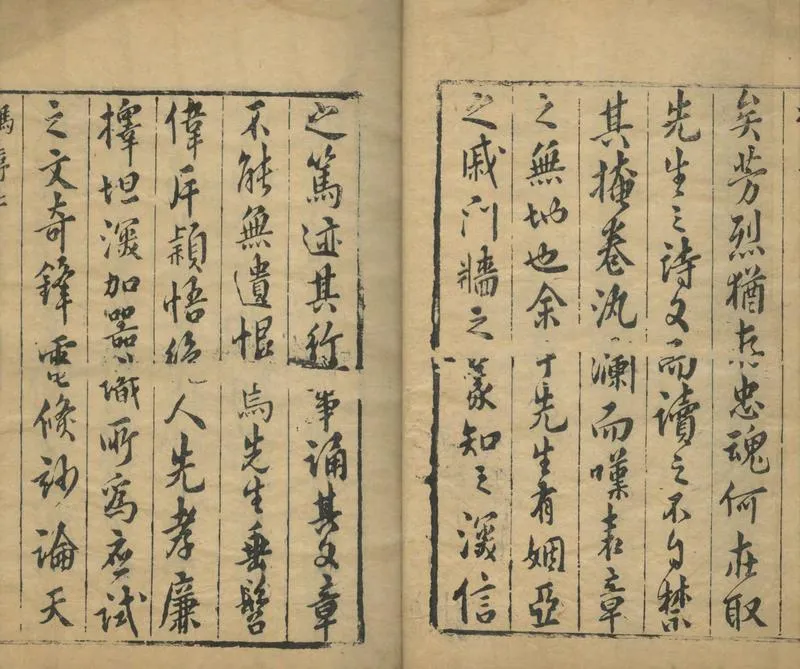 矣芳烈猶存忠魂何在取
先生之詩文而讀之不自禁
其掩卷汍瀾而嘆表章
之無地也余于先生有姻亞
之戚門牆之義知之深信
之篤述其行事誦其文章
不能無遺恨焉先生垂髫
偉岸穎悟絕人先孝廉
擇坦深加器識所為應試
之文奇鋒電倏妙論天
馮序二